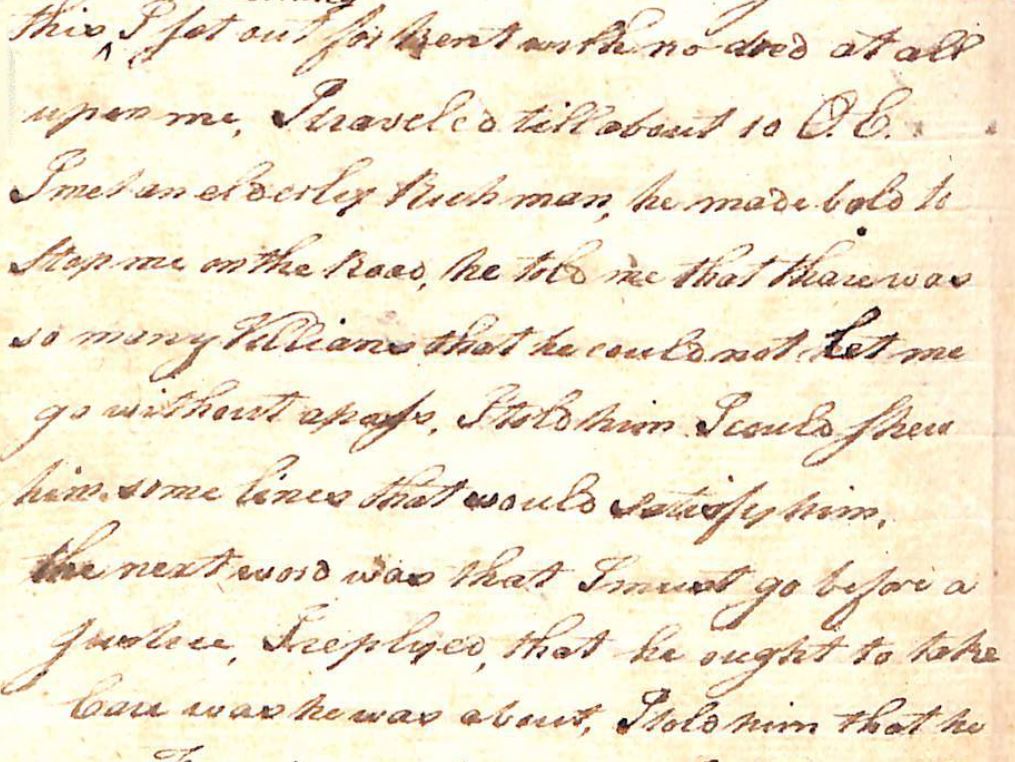 this ^ I set out for Kent with no dred at all
upon me, I traveled till about 10 O.C.
I met an elderley Rich man, he made bold to
stop me on the Road, he told me that thare was
so many Villians that he could not let me
go without a pass, I told him I could shew
him some lines that would satisfy him,
the next word was that I must go before a
Justice, I replyed, that he ought to take
Care was he was about, I told him that he